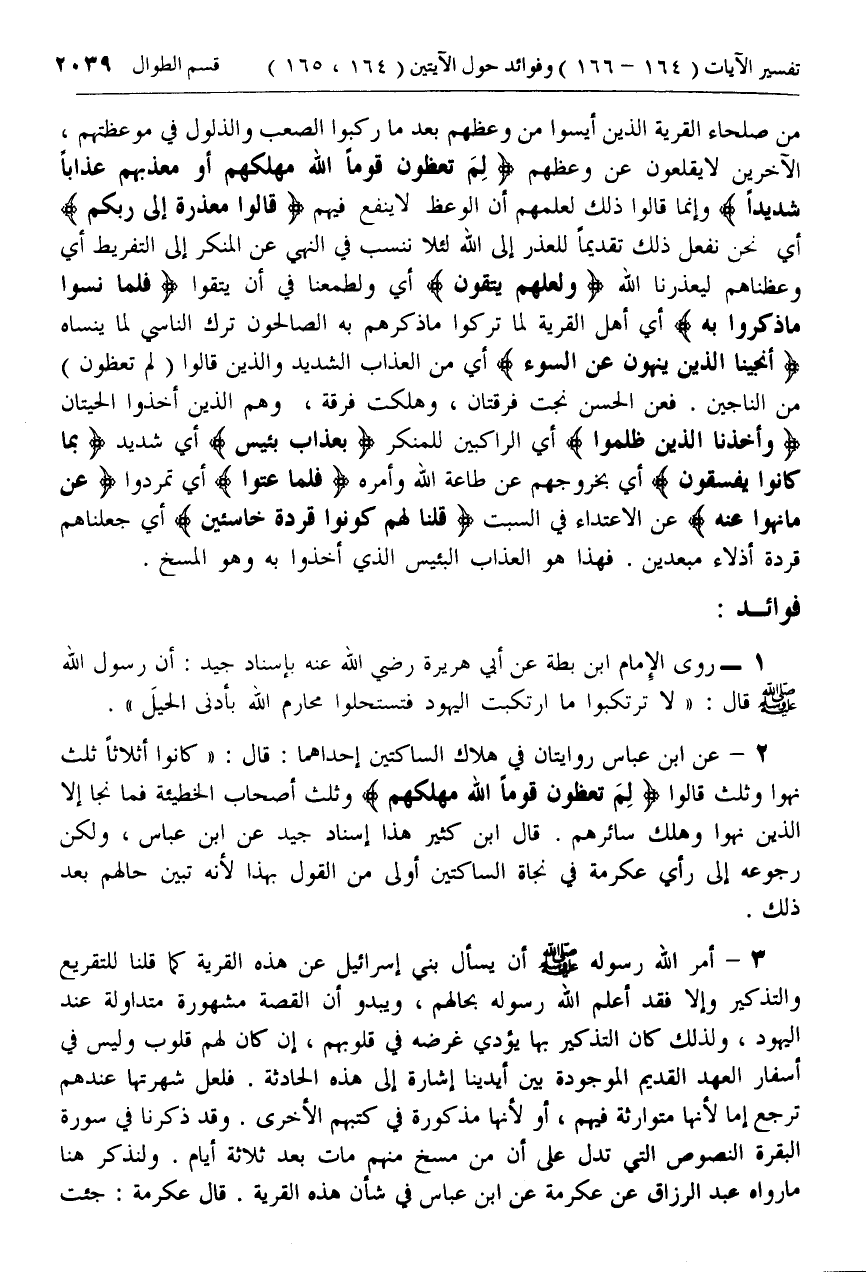 تفسير الآيات ( ١٦٤ – ١٦٦ ) وفوائد حول الآيتين ( ١٦٤ ، ١٦٥ ) قسم الطوال ٢٠٣٩
من صلحاء القرية الذين أيسوا من وعظهم بعد ما ركبوا الصعب والذلول في موعظتهم ،
الآخرين لايقلعون عن وعظهم ﴿ لِمَ تعظون قوماً الله مهلكهم أو معذبهم عذاباً
شديداً ﴾ وإنما قالوا ذلك لعلمهم أن الوعظ لاينفع فيهم ﴿ قالوا معذرة إلى ربكم ﴾
أي نحن نفعل ذلك تقديماً للعذر إلى الله لئلا ننسب في النهي عن المنكر إلى التفريط أي
وعظناهم ليعذرنا الله ﴿ ولعلهم يتقون ﴾ أي ولطمعنا في أن يتقوا ﴿ فلما نسوا
ماذكروا به ﴾ أي أهل القرية لما تركوا ماذكرهم به الصالحون ترك الناسي لما ينساه
﴿ أنجينا الذين ينهون عن السوء ﴾ أي من العذاب الشديد والذين قالوا ( لم تعظون )
من الناجين . فعن الحسن نجت فرقتان ، وهلكت فرقة ، وهم الذين أخذوا الحيتان
﴿ وأخذنا الذين ظلموا ﴾ أي الراكبين للمنكر ﴿ بعذاب بئيس ﴾ أي شديد ﴿ بما
كانوا يفسقون ﴾ أي بخروجهم عن طاعة الله وأمره ﴿ فلما عتوا ﴾ أي تمردوا ﴿ عن
مانهوا عنه ﴾ عن الاعتداء في السبت ﴿ قلنا لهم كونوا قردة خاسئين ﴾ أي جعلناهم
قردة أذلاء مبعدين . فهذا هو العذاب البئيس الذي أخذوا به وهو المسخ .
فوائـد :
١ – روى الإمام ابن بطة عن أبي هريرة رضي الله عنه بإسناد جيد : أن رسول الله
ﷺ قال : « لا ترتكبوا ما ارتكبت اليهود فتستحلوا محارم الله بأدنى الحيلَ » .
٢ – عن ابن عباس روايتان في هلاك الساكتين إحداهما : قال : « كانوا أثلاثاً ثلث
نهوا وثلث قالوا ﴿ لِمَ تعظون قوماً الله مهلكهم ﴾ وثلث أصحاب الخطيئة فما نجا إلا
الذين نهوا وهلك سائرهم . قال ابن كثير هذا إسناد جيد عن ابن عباس ، ولكن
رجوعه إلى رأي عكرمة في نجاة الساكتين أولى من القول بهذا لأنه تبين حالهم بعد
ذلك .
٣ – أمر الله رسوله ﷺ أن يسأل بني إسرائيل عن هذه القرية كما قلنا للتقريع
والتذكير وإلا فقد أعلم الله رسوله بحالهم ، ويبدو أن القصة مشهورة متداولة عند
اليهود ، ولذلك كان التذكير بها يؤدي غرضه في قلوبهم ، إن كان لهم قلوب وليس في
أسفار العهد القديم الموجودة بين أيدينا إشارة إلى هذه الحادثة . فلعل شهرتها عندهم
ترجع إما لأنها متوارثة فيهم ، أو لأنها مذكورة في كتبهم الأخرى . وقد ذكرنا في سورة
البقرة النصوص التي تدل على أن من مسخ منهم مات بعد ثلاثة أيام . ولنذكر هنا
مارواه عبد الرزاق عن عكرمة عن ابن عباس في شأن هذه القرية . قال عكرمة : جئت